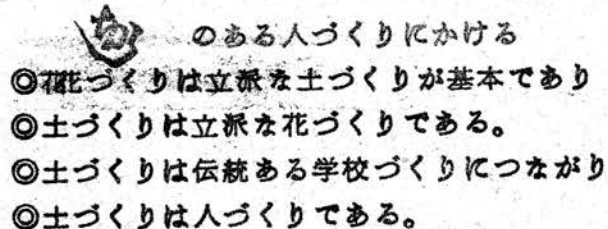 のある人づくりにかける
◎花づくりは立派な土づくりが基本であり
◎土づくりは立派な花づくりである。
◎土づくりは伝統ある学校づくりにつながり
◎土づくりは人づくりである。